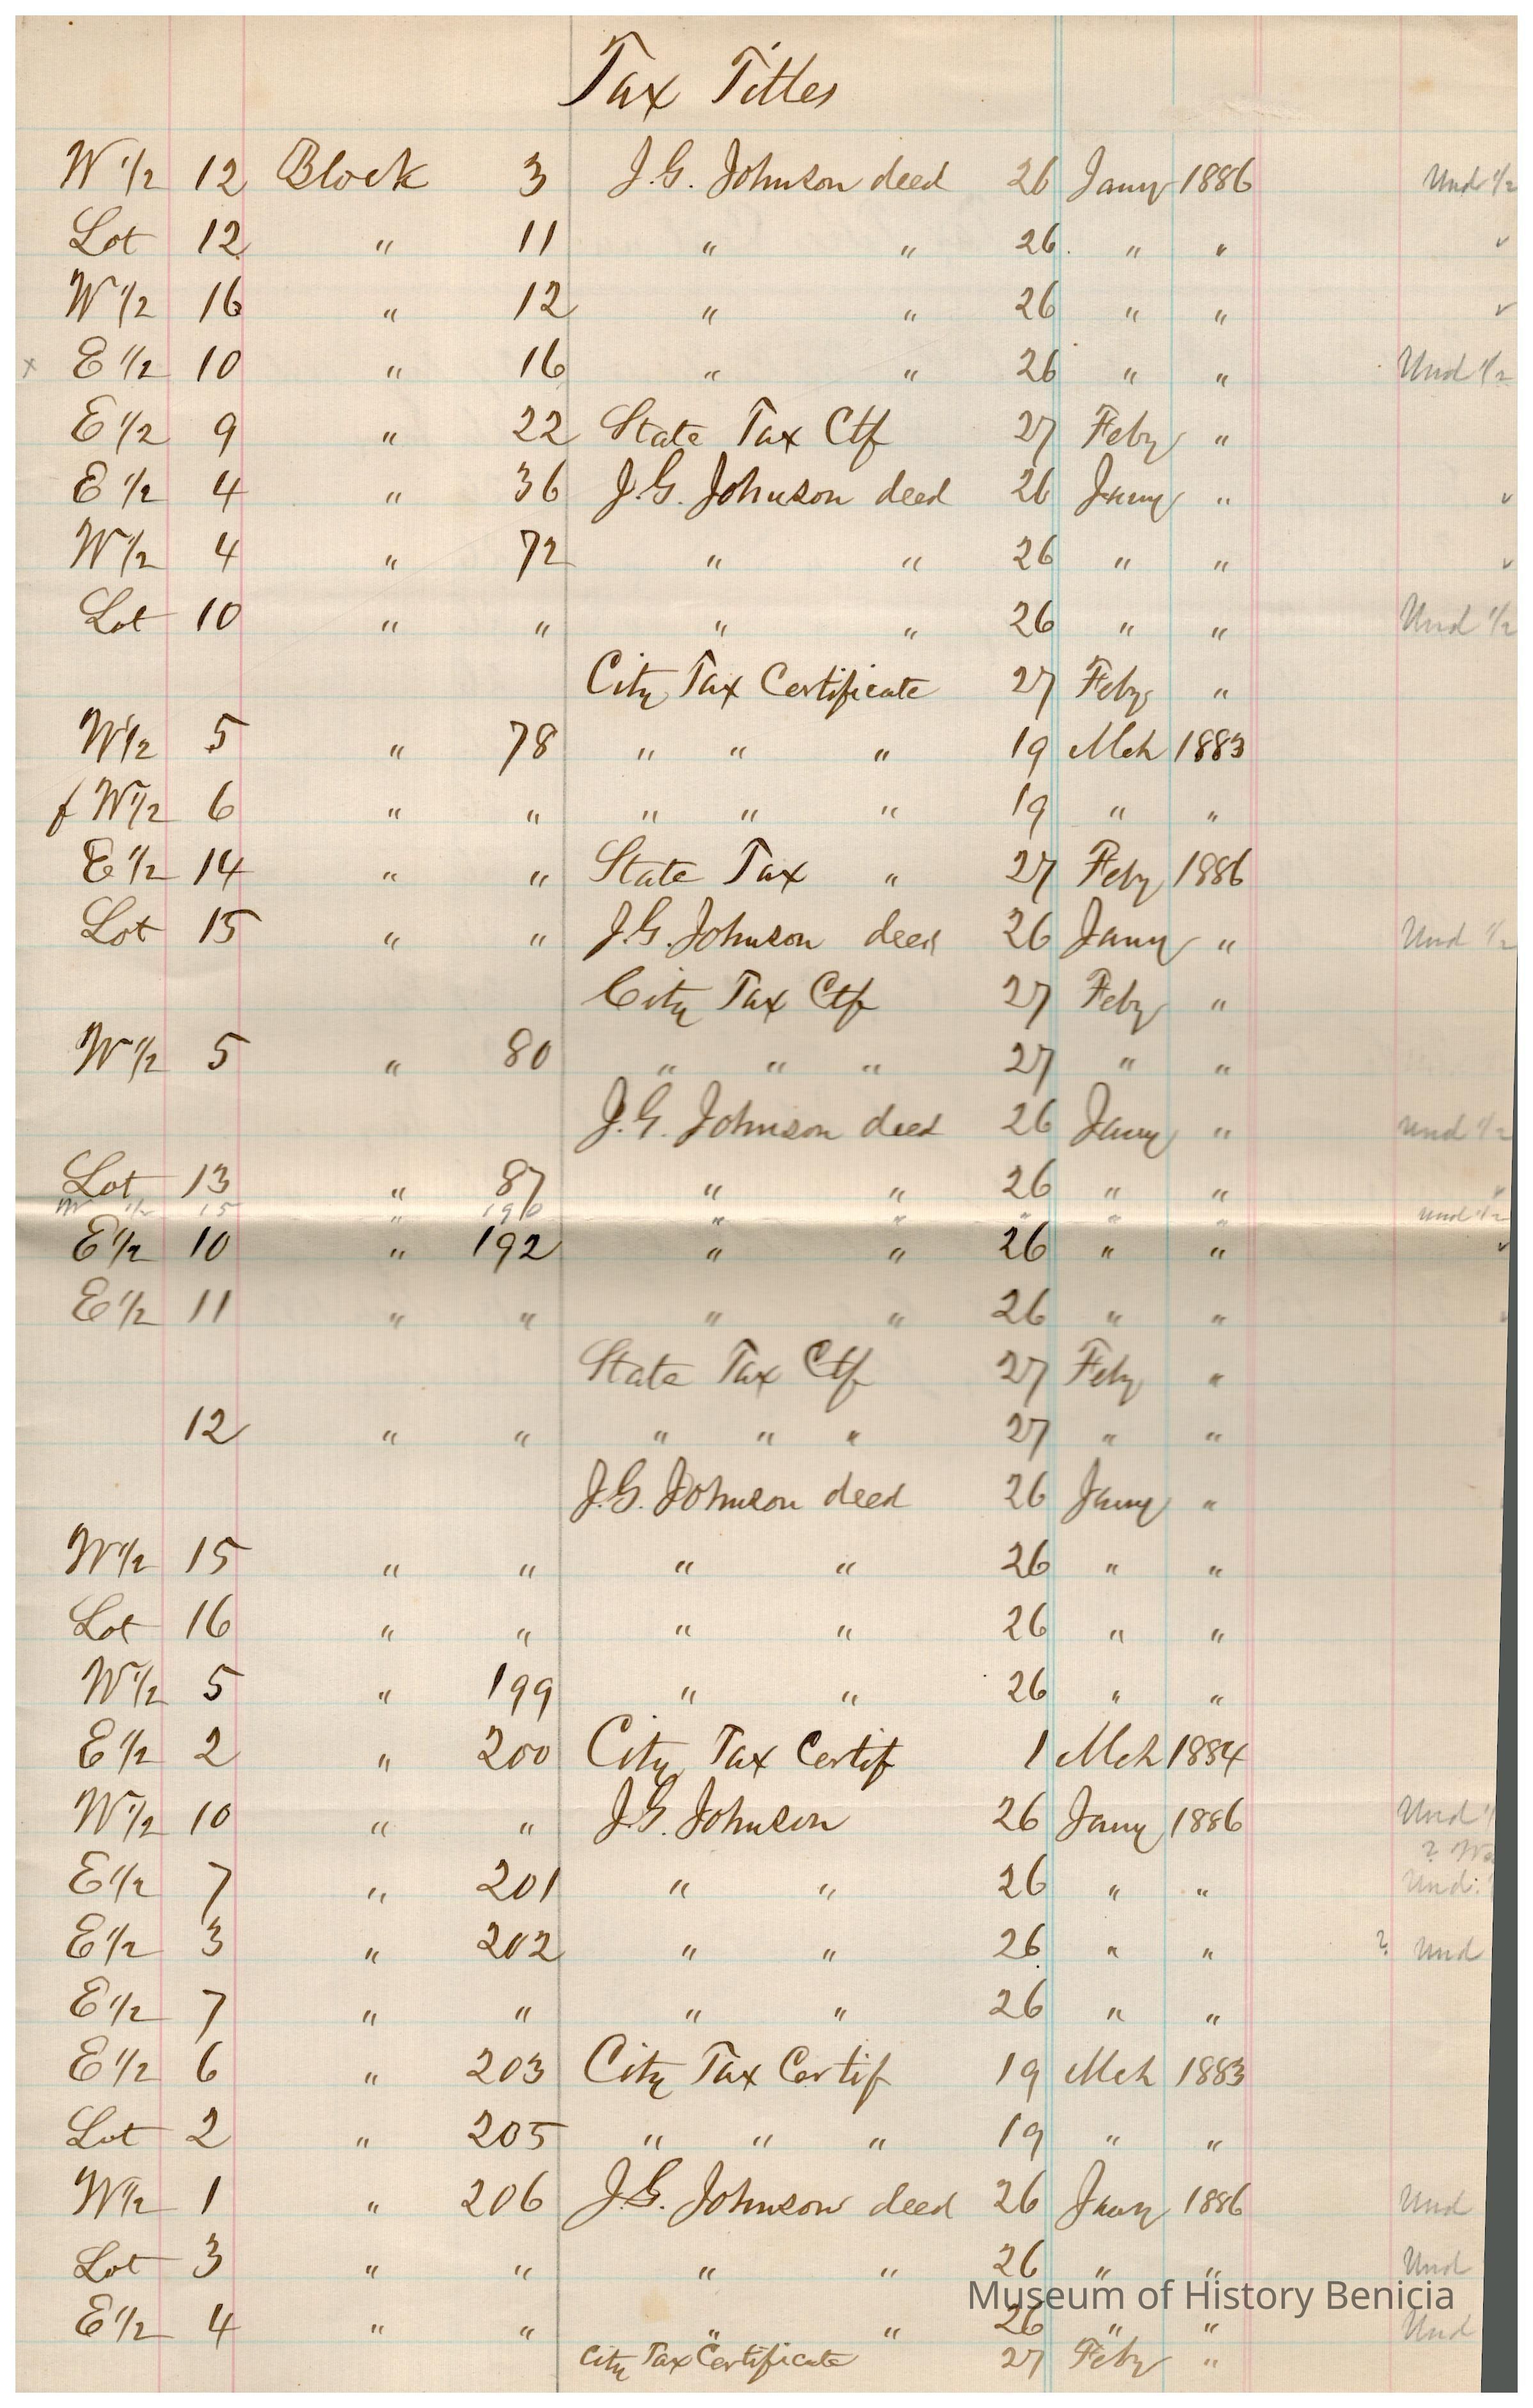 Tax Titles
W 1/2 12 Block 3 J.G. Johnson deed 26 Jany 1886 Und 1/2
Lot 12 " 11 " " 26 " " ✓
W 1/2 16 " 12 " " 26 " " ✓
x E 1/2 10 " 16 " " 26 " " Und 1/2
E 1/2 9 " 22 State Tax Ctf 27 Feby "
E 1/2 4 " 36 J.G. Johnson deed 26 Jany " ✓
W 1/2 4 " 72 " " 26 " " ✓
Lot 10 " " " " 26 " " Und 1/2
City Tax Certificate 27 Feby "
W 1/2 5 " 78 " " " 19 Mch 1883
f W 1/2 6 " " " " " 19 " "
E 1/2 14 " " State Tax " 27 Feby 1886
Lot 15 " " J.G. Johnson deed 26 Jany " Und 1/2
City Tax Ctf 27 Feby "
W 1/2 5 " 80 " " " 27 " "
J.G. Johnson deed 26 Jany " Und 1/2
Lot 13 " 87 " " 26 " " ✓
W 1/2 15 " 190 " " " " " Und 1/2
E 1/2 10 " 192 " " 26 " " ✓
E 1/2 11 " " " " 26 " "
State Tax Ctf 27 Feby "
12 " " " " " 27 " "
J.G. Johnson deed 26 Jany "
W 1/2 15 " " " " 26 " "
Lot 16 " " " " 26 " "
W 1/2 5 " 199 " " 26 " "
E 1/2 2 " 200 City Tax Certif 1 Mch 1884
W 1/2 10 " " J.G. Johnson 26 Jany 1886 Und
?
E 1/2 7 " 201 " " 26 " " Und.
E 1/2 3 " 202 " " 26 " " ? Und
E 1/2 7 " " " " 26 " "
E 1/2 6 " 203 City Tax Certif 19 Mch 1883
Lot 2 " 205 " " " 19 " "
W 1/2 1 " 206 J.G. Johnson deed 26 Jany 1886 Und
Lot 3 " " " " 26 " " Und
Museum of History Benicia
E 1/2 4 " " " " 26 " " Und
City Tax Certificate 27 Feby "